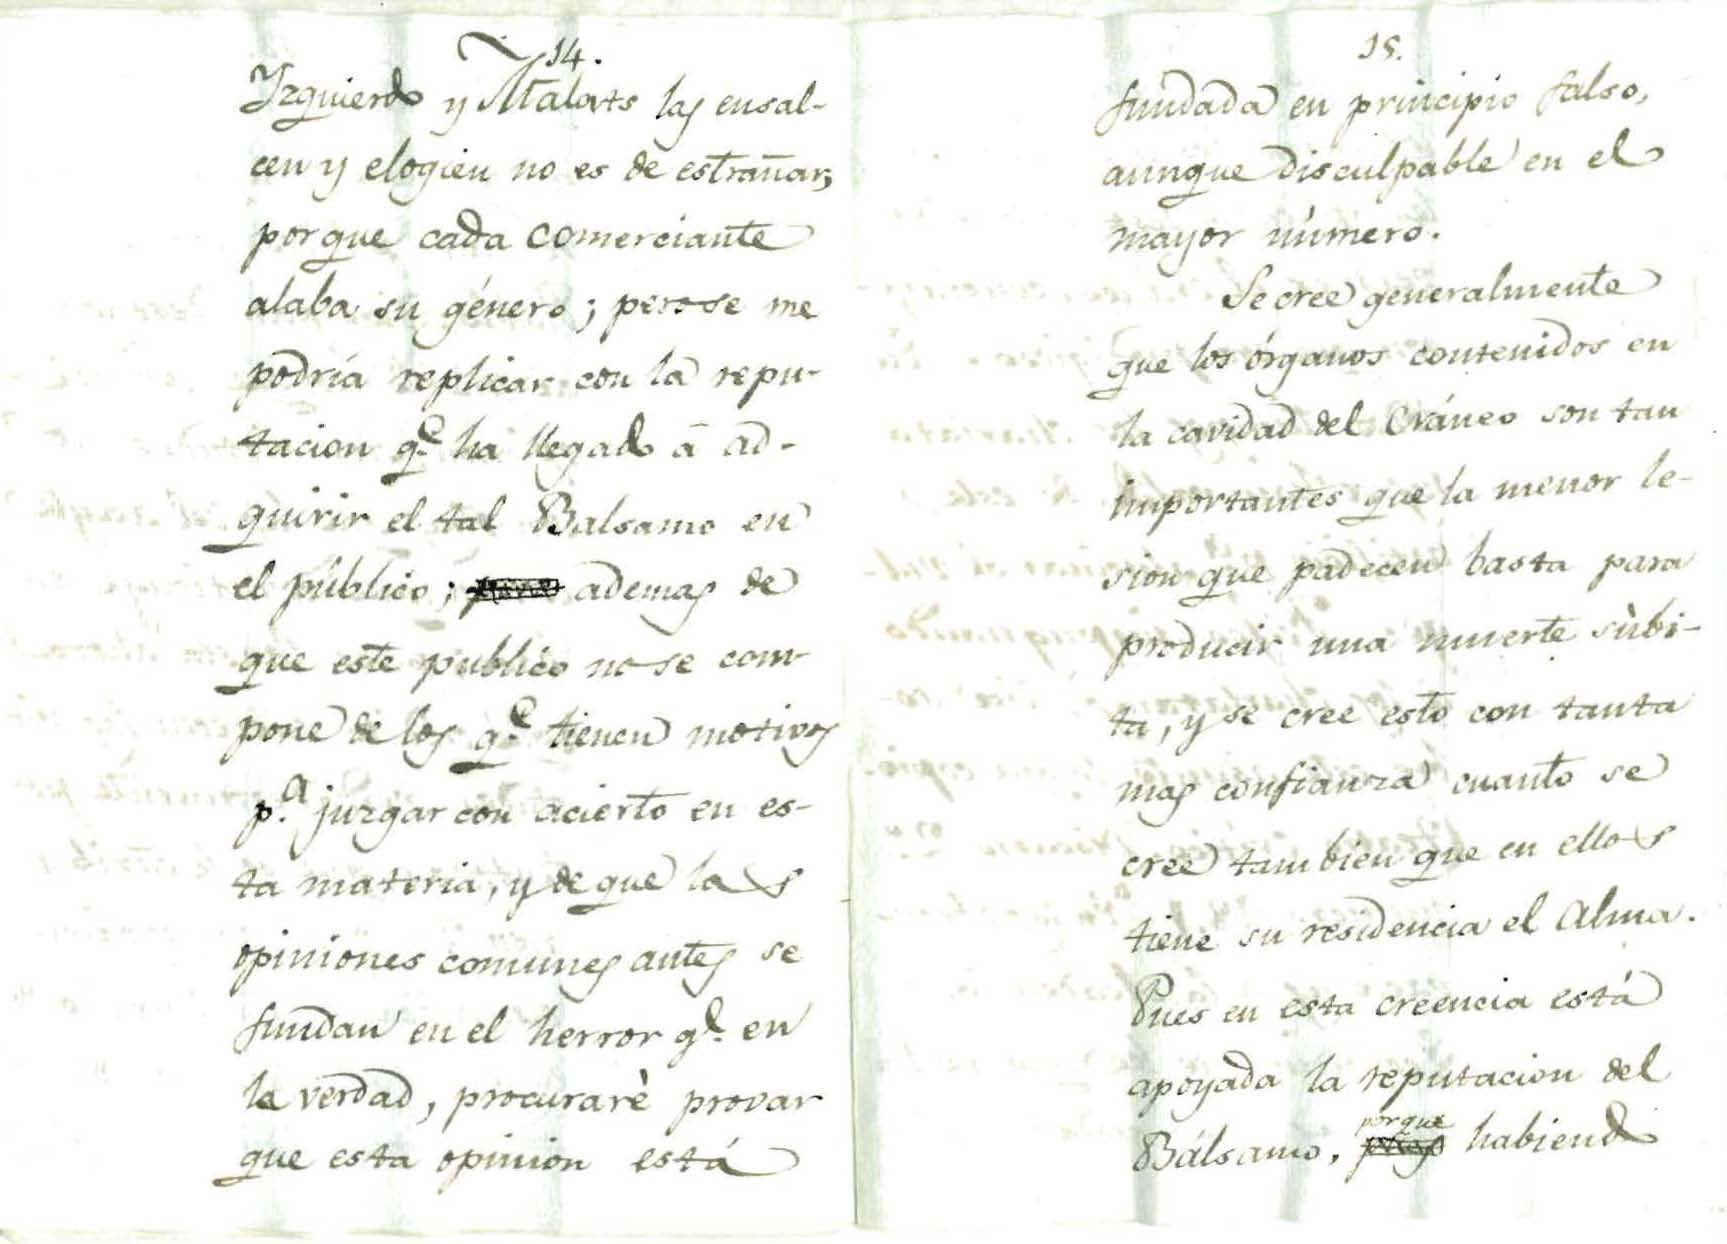 14.
Yzquierdo y Malats las ensal-
cen y elogien no es de estrañar,
porque cada comerciante
alaba su género; pero se me
podría replicar con la repu-
tacion q.e ha llegado á ad-
quirir el tal Balsamo en
el público; ademas de
que este publico no se com-
pone de los q.e tienen motivos
p.a juzgar con acierto en es-
ta materia, y de que las
opiniones comunes antes se
fundan en el herror q.e en
la verdad, procurarè provar
que esta opinion está
15.
fundada en principio falso,
aunque disculpable en el
mayor número.
Se cree generalmente
que los órganos contenidos en
la cavidad del Cráneo son tan
importantes que la menor le-
sion que padecen basta para
producir una muerte sùbi-
ta, y se cree esto con tanta
mas confianza cuanto se
cree tambien que en ellos
tiene su residencia el Alma.
Pues en esta creencia está
apoyada la reputacion del
Bálsamo, porque habiendo